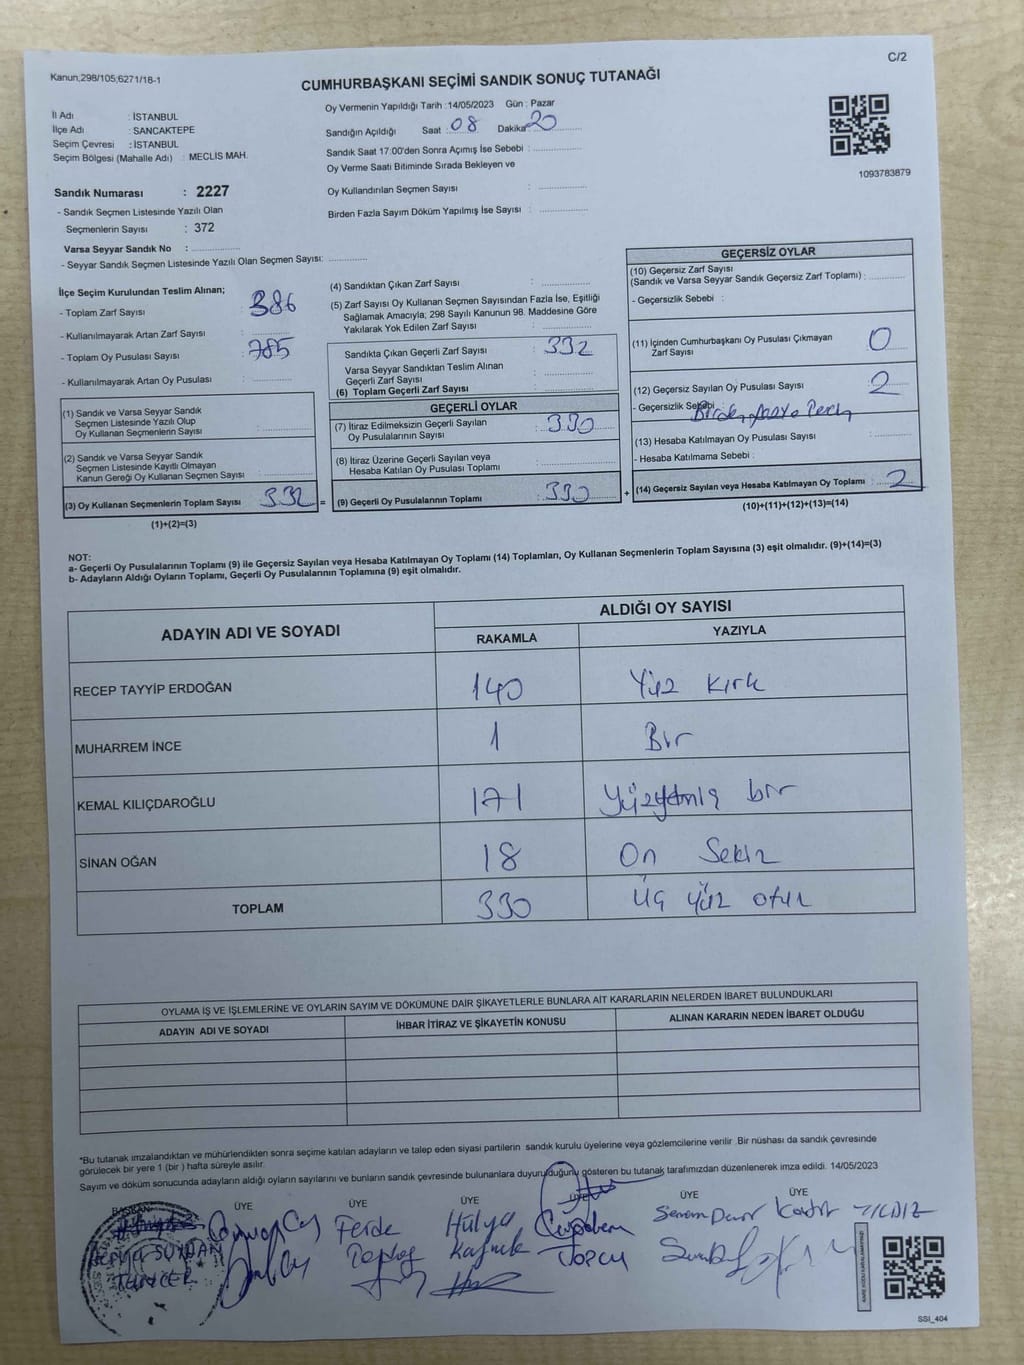 Kanun;298/105;6271/18-1
C/2
CUMHURBAŞKANI SEÇİMİ SANDIK SONUÇ TUTANAĞI
İl Adı : İSTANBUL
İlçe Adı : SANCAKTEPE
Seçim Çevresi : İSTANBUL
Seçim Bölgesi (Mahalle Adı) : MECLİS MAH.
Sandık Numarası : 2227
- Sandık Seçmen Listesinde Yazılı Olan
Seçmenlerin Sayısı : 372
Varsa Seyyar Sandık No :
- Seyyar Sandık Seçmen Listesinde Yazılı Olan Seçmen Sayısı:
Oy Vermenin Yapıldığı Tarih : 14/05/2023 Gün : Pazar
Sandığın Açıldığı Saat : 08 Dakika 20
Sandık Saat 17:00'den Sonra Açımış İse Sebebi :
Oy Verme Saati Bitiminde Sırada Bekleyen ve
Oy Kullandırılan Seçmen Sayısı :
Birden Fazla Sayım Döküm Yapılmış İse Sayısı :
1093783879
İlçe Seçim Kurulundan Teslim Alınan;
- Toplam Zarf Sayısı : 386
- Kullanılmayarak Artan Zarf Sayısı :
- Toplam Oy Pusulası Sayısı : 785
- Kullanılmayarak Artan Oy Pusulası :
(1) Sandık ve Varsa Seyyar Sandık
Seçmen Listesinde Yazılı Olup
Oy Kullanan Seçmenlerin Sayısı :
(2) Sandık ve Varsa Seyyar Sandık
Seçmen Listesinde Kayıtlı Olmayan
Kanun Gereği Oy Kullanan Seçmen Sayısı :
(3) Oy Kullanan Seçmenlerin Toplam Sayısı : 332 =
(1)+(2)=(3)
(4) Sandıktan Çıkan Zarf Sayısı :
(5) Zarf Sayısı Oy Kullanan Seçmen Sayısından Fazla İse, Eşitliği
Sağlamak Amacıyla; 298 Sayılı Kanunun 98. Maddesine Göre
Yakılarak Yok Edilen Zarf Sayısı :
Sandıkta Çıkan Geçerli Zarf Sayısı : 332
Varsa Seyyar Sandıktan Teslim Alınan
Geçerli Zarf Sayısı :
(6) Toplam Geçerli Zarf Sayısı :
GEÇERLİ OYLAR
(7) İtiraz Edilmeksizin Geçerli Sayılan
Oy Pusulalarının Sayısı : 330
(8) İtiraz Üzerine Geçerli Sayılan veya
Hesaba Katılan Oy Pusulası Toplamı :
(9) Geçerli Oy Pusulalarının Toplamı : 330 +
GEÇERSİZ OYLAR
(10) Geçersiz Zarf Sayısı
(Sandık ve Varsa Seyyar Sandık Geçersiz Zarf Toplamı) :
- Geçersizlik Sebebi :
(11) İçinden Cumhurbaşkanı Oy Pusulası Çıkmayan
Zarf Sayısı : 0
(12) Geçersiz Sayılan Oy Pusulası Sayısı : 2
- Geçersizlik Sebebi : Birden fazla
(13) Hesaba Katılmayan Oy Pusulası Sayısı :
- Hesaba Katılmama Sebebi :
(14) Geçersiz Sayılan veya Hesaba Katılmayan Oy Toplamı : 2
(10)+(11)+(12)+(13)=(14)
NOT:
a- Geçerli Oy Pusulalarının Toplamı (9) ile Geçersiz Sayılan veya Hesaba Katılmayan Oy Toplamı (14) Toplamları, Oy Kullanan Seçmenlerin Toplam Sayısına (3) eşit olmalıdır. (9)+(14)=(3)
b- Adayların Aldığı Oyların Toplamı, Geçerli Oy Pusulalarının Toplamına (9) eşit olmalıdır.
ADAYIN ADI VE SOYADI ALDIĞI OY SAYISI
RAKAMLA YAZIYLA
RECEP TAYYİP ERDOĞAN 140 Yüz kırk
MUHARREM İNCE 1 Bir
KEMAL KILIÇDAROĞLU 171 Yüzyetmiş bir
SİNAN OĞAN 18 On Sekiz
TOPLAM 330 Üç yüz otuz
OYLAMA İŞ VE İŞLEMLERİNE VE OYLARIN SAYIM VE DÖKÜMÜNE DAİR ŞİKAYETLERLE BUNLARA AİT KARARLARIN NELERDEN İBARET BULUNDUKLARI
ADAYIN ADI VE SOYADI İHBAR İTİRAZ VE ŞİKAYETİN KONUSU ALINAN KARARIN NEDEN İBARET OLDUĞU
*Bu tutanak imzalandıktan ve mühürlendikten sonra seçime katılan adayların ve talep eden siyasi partilerin sandık kurulu üyelerine veya gözlemcilerine verilir. Bir nüshası da sandık çevresinde
görülecek bir yere 1 (bir) hafta süreyle asılır.
Sayım ve döküm sonucunda adayların aldığı oyların sayılarını ve bunların sandık çevresinde bulunanlara duyurulduğunu gösteren bu tutanak tarafımızdan düzenlenerek imza edildi. 14/05/2023
BAŞKAN ÜYE ÜYE ÜYE ÜYE ÜYE ÜYE
TUNCER
Ferde
Hülya
Kaynak
Kadir YILDIZ
KARE KODU KARALAMAYINIZ!
SSI_404